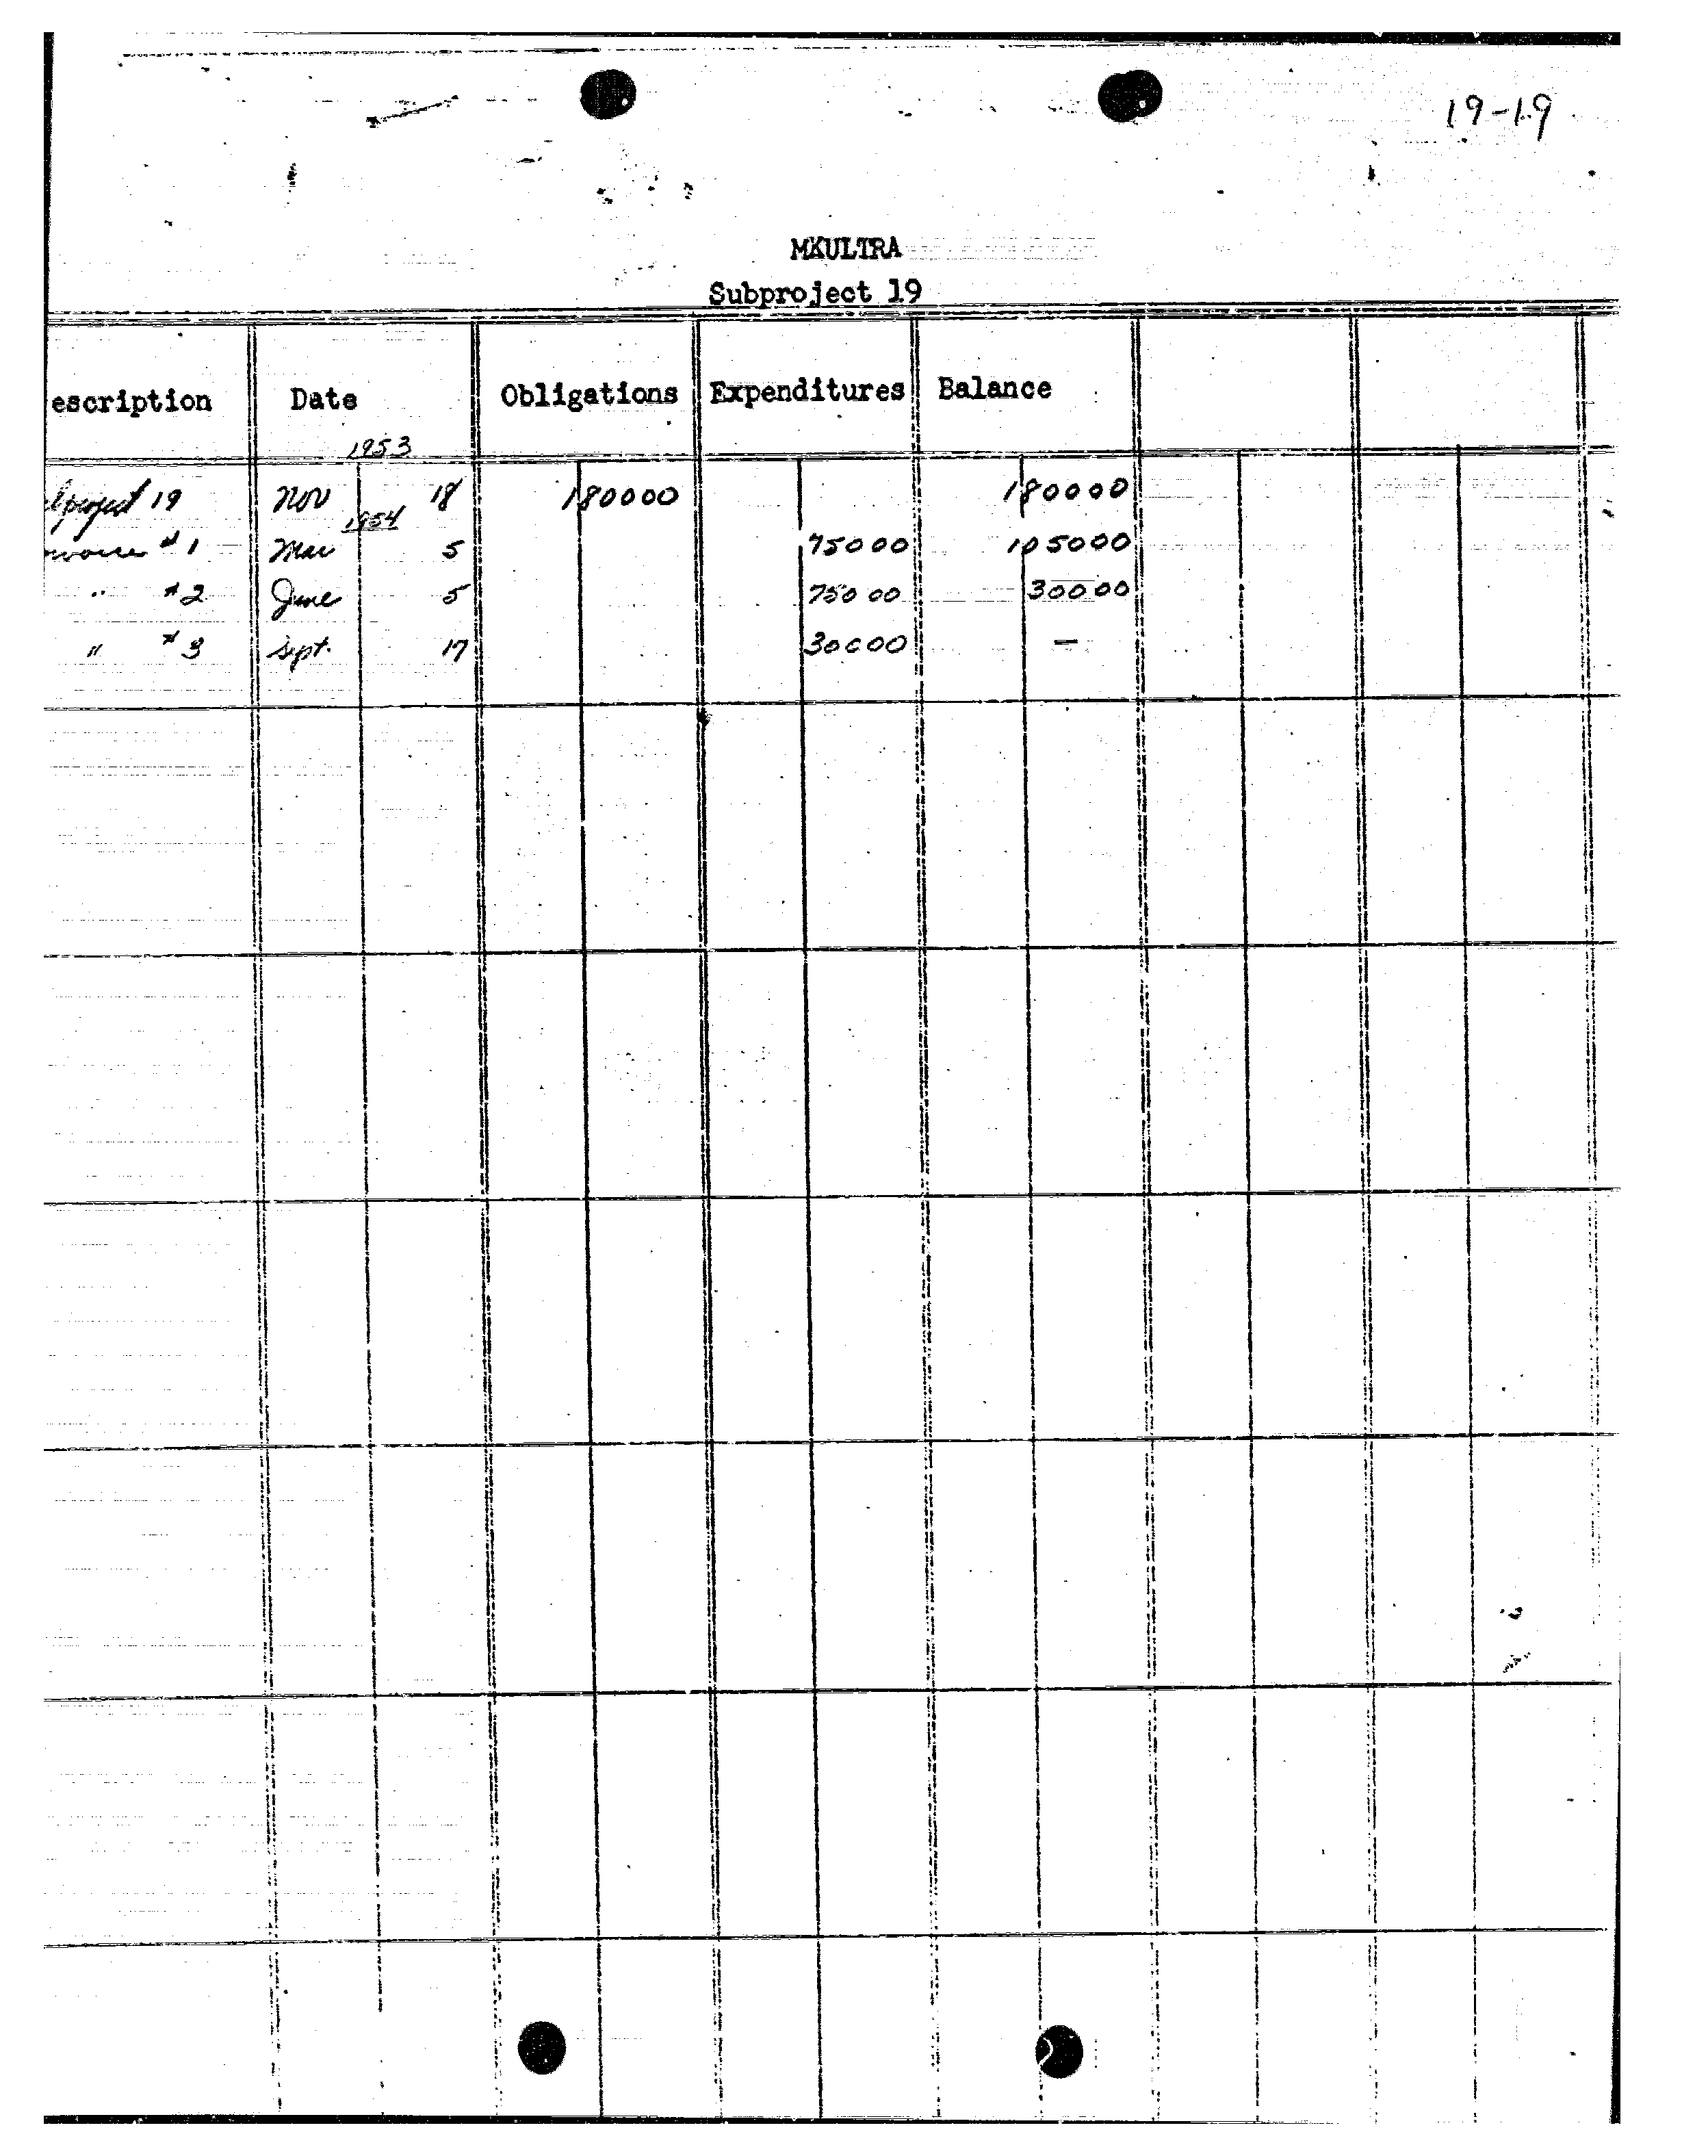 19-19
MKULTRA
Subproject 19
escription Date Obligations Expenditures Balance
1953
19 Nov 18 180000 180000
1954
#1 Mar 5 75000 105000
" #2 June 5 75000 30000
" #3 Sept. 17 30000 —